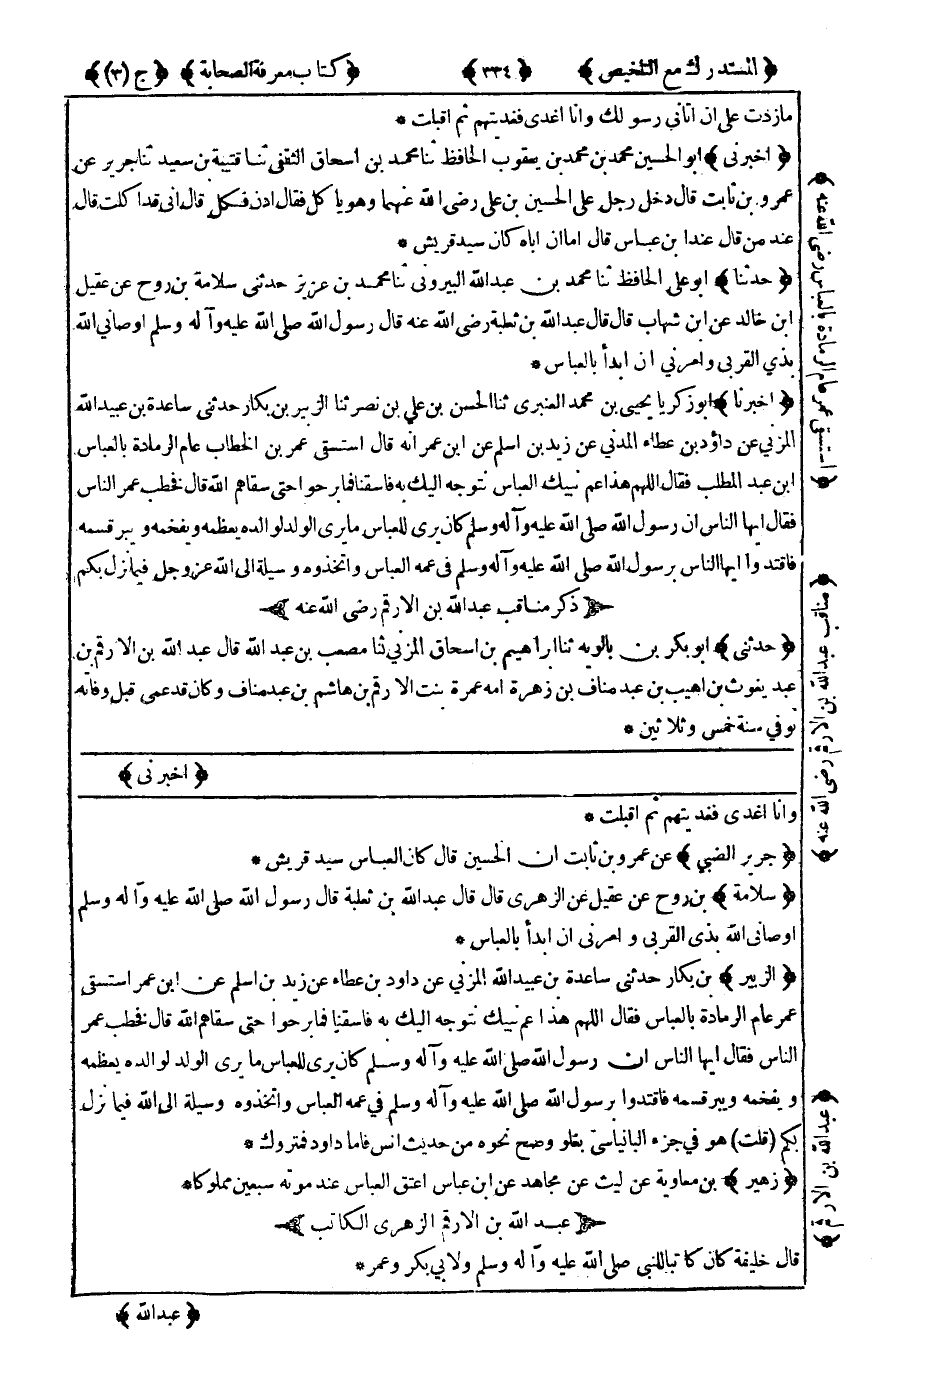 ﴿ المستدرك مع التلخيص ﴾ ﴿ ٣٣٤ ﴾ ﴿ كتاب معرفة الصحابة ﴾ ﴿ ج (٣) ﴾
مازدت على ان اتانى رسولك وانا اغدى فغديتهم ثم اقبلت *
﴿ اخبرنى ﴾ ابو الحسين محمد بن محمد بن يعقوب الحافظ ثنا محمد بن اسحاق الثقفى ثنا قتيبة بن سعيد ثنا جرير عن
عمرو بن ثابت قال دخل رجل على الحسين بن على رضى الله عنهما وهو ياكل فقال ادن فكل قال انى قد اكلت قال
عند من قال عند ابن عباس قال اما ان اباه كان سيد قريش *
﴿ حدثنا ﴾ ابو على الحافظ ثنا محمد بن عبدالله البيروتى ثنا محمد بن عزيز حدثنى سلامة بن روح عن عقيل
ابن خالد عن ابن شهاب قال قال عبدالله بن ثعلبة رضى الله عنه قال رسول الله صلى الله عليه وآله وسلم اوصانى الله
بذي القربى وامرني ان ابدأ بالعباس *
﴿ اخبرنا ﴾ ابو زكريا يحيى بن محمد العنبرى ثنا الحسن بن علي بن نصر ثنا الزبير بن بكار حدثنى ساعدة بن عبيد الله
المزني عن داؤد بن عطاء المدني عن زيد بن اسلم عن ابن عمر انه قال استسقى عمر بن الخطاب عام الرمادة بالعباس
ابن عبد المطلب فقال اللهم هذا عم نبيك العباس نتوجه اليك به فاسقنا فما برحوا حتى سقاهم الله قال فخطب عمر الناس
فقال ايها الناس ان رسول الله صلى الله عليه وآله وسلم كان يرى للعباس ما يرى الولد لوالده يعظمه ويفخمه ويبر قسمه
فاقتدوا ايها الناس برسول الله صلى الله عليه وآله وسلم فى عمه العباس واتخذوه وسيلة الى الله عز وجل فيما نزل بكم
﴿ ذكر مناقب عبدالله بن الارقم رضى الله عنه ﴾
﴿ حدثنى ﴾ ابو بكر بن بالويه ثنا ابراهيم بن اسحاق المزني ثنا مصعب بن عبد الله قال عبد الله بن الارقم بن
عبد يغوث بن اهيب بن عبد مناف بن زهرة امه عمرة بنت الارقم بن هاشم بن عبد مناف وكان قد عمى قبل وفاته
توفي سنة خمس وثلاثين *
﴿ اخبرنى ﴾
وانا اغدى فغديتهم ثم اقبلت *
﴿ جرير الضبي ﴾ عن عمرو بن ثابت ان الحسين قال كان العباس سيد قريش *
﴿ سلامة ﴾ بن روح عن عقيل عن الزهرى قال قال عبدالله بن ثعلبة قال رسول الله صلى الله عليه وآله وسلم
اوصانى الله بذى القربى وامرنى ان ابدأ بالعباس *
﴿ الزبير ﴾ بن بكار حدثنى ساعدة بن عبيدالله المزني عن داود بن عطاء عن زيد بن اسلم عن ابن عمر استسقى
عمر عام الرمادة بالعباس فقال اللهم هذا عم نبيك نتوجه اليك به فاسقنا فما برحوا حتى سقاهم الله قال فخطب عمر
الناس فقال ايها الناس ان رسول الله صلى الله عليه وآله وسلم كان يرى للعباس ما يرى الولد لوالده يعظمه
ويفخمه ويبر قسمه فاقتدوا برسول الله صلى الله عليه وآله وسلم في عمه العباس واتخذوه وسيلة الى الله فيما نزل
بكم (قلت) هو في جزء البانياسي بعلو وصح نحوه من حديث انس فاما داود فمتروك *
﴿ زهير ﴾ بن معاوية عن ليث عن مجاهد عن ابن عباس اعتق العباس عند موته سبعين مملوكا *
﴿ عبد الله بن الارقم الزهرى الكاتب ﴾
قال خليفة كان كاتبا للنبى صلى الله عليه وآله وسلم ولابي بكر وعمر *
﴿ عبدالله ﴾
﴿ استسقى عمر عام الرمادة بالعباس رضى الله عنه ﴾
﴿ مناقب عبدالله بن الارقم رضى الله عنه ﴾
﴿ عبدالله بن الارقم ﴾